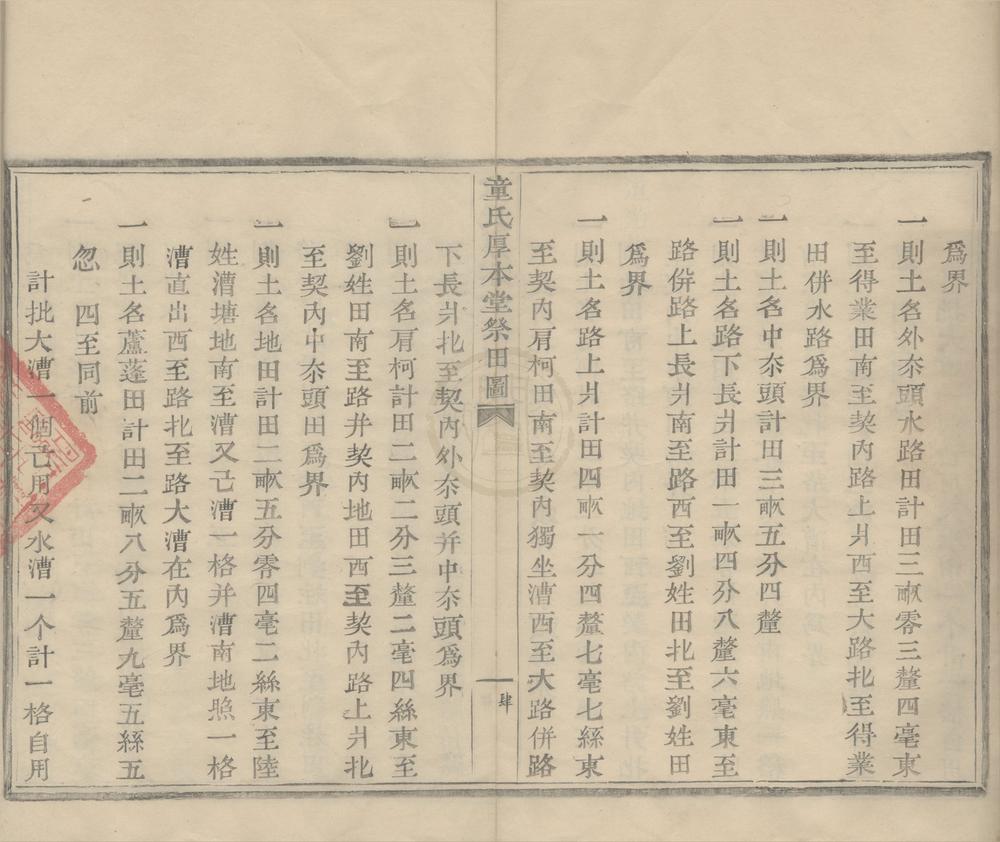 爲界
一則土名外夵頭水路田計田三畝零三釐四毫東
至得業田南至契內路上爿西至大路北至得業
田併水路爲界
一則土名中夵頭計田三畝五分四釐
一則土名路下長爿計田一畝四分八釐六毫東至
路併路上長爿南至路西至劉姓田北至劉姓田
爲界
一則土名路上爿計田四畝一分四釐七毫七絲東
至契內肩柯田南至契內獨坐漕西至大路併路
童氏厚本堂祭田圖
肆
下長爿北至契內外夵頭并中夵頭爲界
一則土名肩柯計田二畝二分三釐二毫四絲東至
劉姓田南至路并契內地田西至契內路上爿北
至契內中夵頭田爲界
一則土名地田計田二畝五分零四毫二絲東至陸
姓漕塘地南至漕又己漕一格并漕南地照一格
漕直出西至路北至路大漕在內爲界
一則土名蘆蓬田計田二畝八分五釐九毫五絲五
忽 四至同前
計批大漕一個己用又水漕一个計一格自用